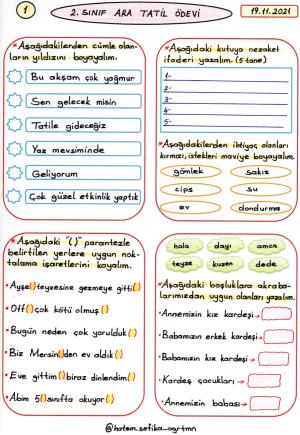 1
2. SINIF ARA TATİL ÖDEVİ
19.11.2021
* Aşağıdakilerden cümle olan-
ların yıldızını boyayalım.
Bu akşam çok yağmur
Sen gelecek misin
Tatile gideceğiz
Yaz mevsiminde
Geliyorum
Çok güzel etkinlik yaptık
* Aşağıdaki kutuya nezaket
ifaderi yazalım. (5 tane)
1-
2-
3-
4-
5-
* Aşağıdakilerden ihtiyaç olanları
kırmızı, istekleri maviye boyayalım.
gömlek
sakız
cips
su
ev
dondurma
* Aşağıdaki "( )" parantezle
belirtilen yerlere uygun nok-
talama işaretlerini koyalım.
• Ayşe( )teyzesine gezmeye gitti( )
• Off( )çok kötü olmuş( )
• Bugün neden çok yorulduk( )
• Biz Mersin( )den ev aldık( )
• Eve gittim( )biraz dinlendim( )
• Abim 5( )sınıfta okuyor( )
hala
dayı
amca
teyze
kuzen
dede
* Aşağıdaki boşluklara akraba-
larımızdan uygun olanları yazalım.
• Annemizin kız kardeşi→
• Babamızın erkek kardeşi→
• Babamızın kız kardeşi→
• Kardeş çocukları→
• Annemizin babası→
@hatem.sefika_ogrtmn